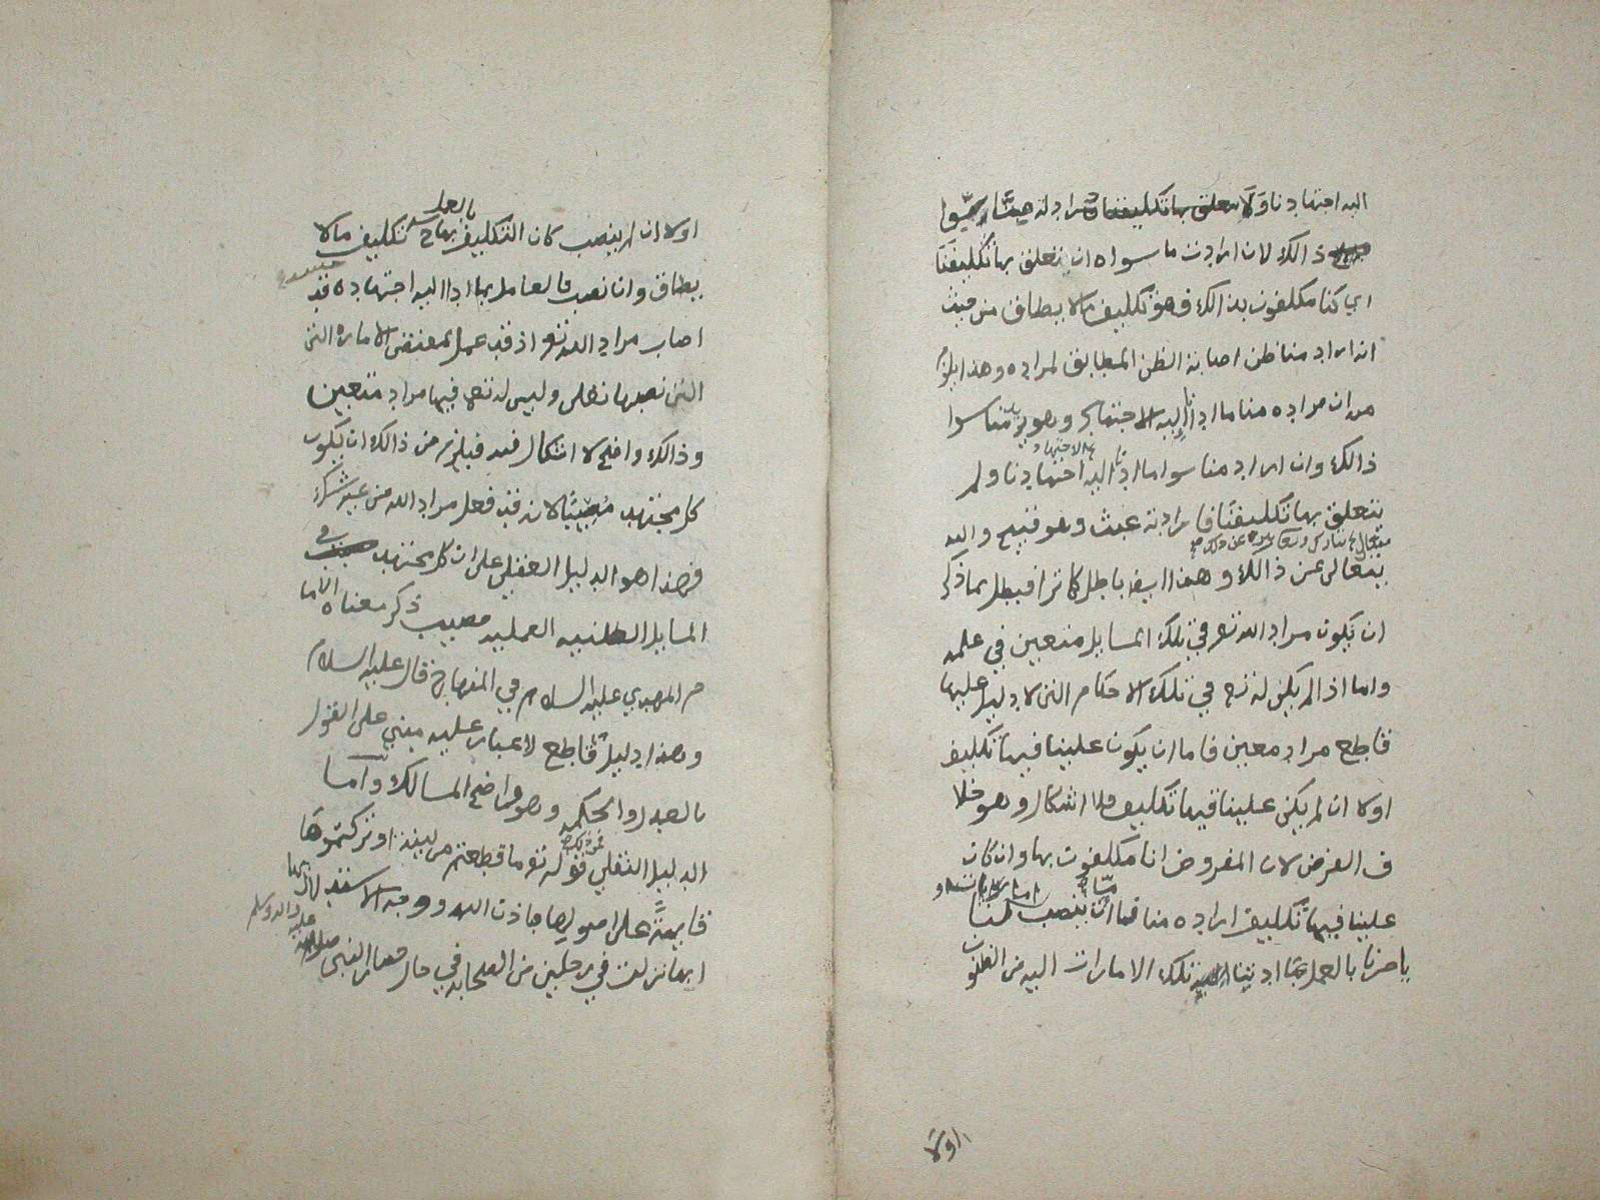 اليه اجتهادنا ولا
ذالك لان اراد منا سواه ان تتعلق بها تكليفنا
اي كنا مكلفون بذالك فهو تكليف مالا يطاق من حيث
انه اراد منا ظن اصابة الظن المطابق لمراده وهذا يلزم
من ان مراده منا ما ادانا اليه الاجتهاد وهو يريد منا سوا
ذالك وان اراد منا سوا ما ادنا اليه اجتهادنا ولم
يتعلق بها تكليفنا فارادته عبث وهو قبيح والله
يتعالى عن ذالك وهذا ايضه باطل كما ترا فبطل بما ذكر
ان يكون مراد الله تع في تلك المسايل متعين في علمه
واما اذا لم يكن له تع في تلك الاحكام التي لا دليل عليها
قاطع مراد معين فاما ان يكون علينا فيها تكليف
اولا ان لم يكن علينا فيها تكليف فلا اشكال وهو خلا
ف الفرض لان المفروض انا مكلفون بها وان كان
علينا فيها تكليف اراده منا فاما ان ينصب لنا امارات او
يامرنا بالعمل بما ادتنا تلك الامارات اليه من الظنون
اولا
اولا ان لم ينصب كان التكليف بالعمل بها تكليف مالا
يطاق وان نصب فالعامل بما ادا اليه اجتهاده قد
اصاب مراد الله تع اذ قد عمل بمقتضى الاماره التي
التي نصبها تعالى وليس له تع فيها مراد متعين
وذالك واضح لا اشكال فيه فيلزم من ذالك ان يكون
كل مجتهد مصيبا لانه قد فعل مراد الله من غير شك
فهذا هو الدليل العقلي على ان كل مجتهد في
المسايل الظنيه العمليه مصيب ذكر معناه الاما
م المهدي عليه السلام في المنهاج قال عليه السلام
وهذا دليل قاطع لا غبار عليه مبني على القول
بالعدل والحكمه وهو واضح المسالك واما
الدليل النقلي فقوله تع ما قطعتم من لينة او تركتموها
قايمة على اصولها فباذن الله ووجه الاستدلال بها
انها نزلت في رجلين من الصحابه في حال حصار النبي صلى الله عليه واله وسلم